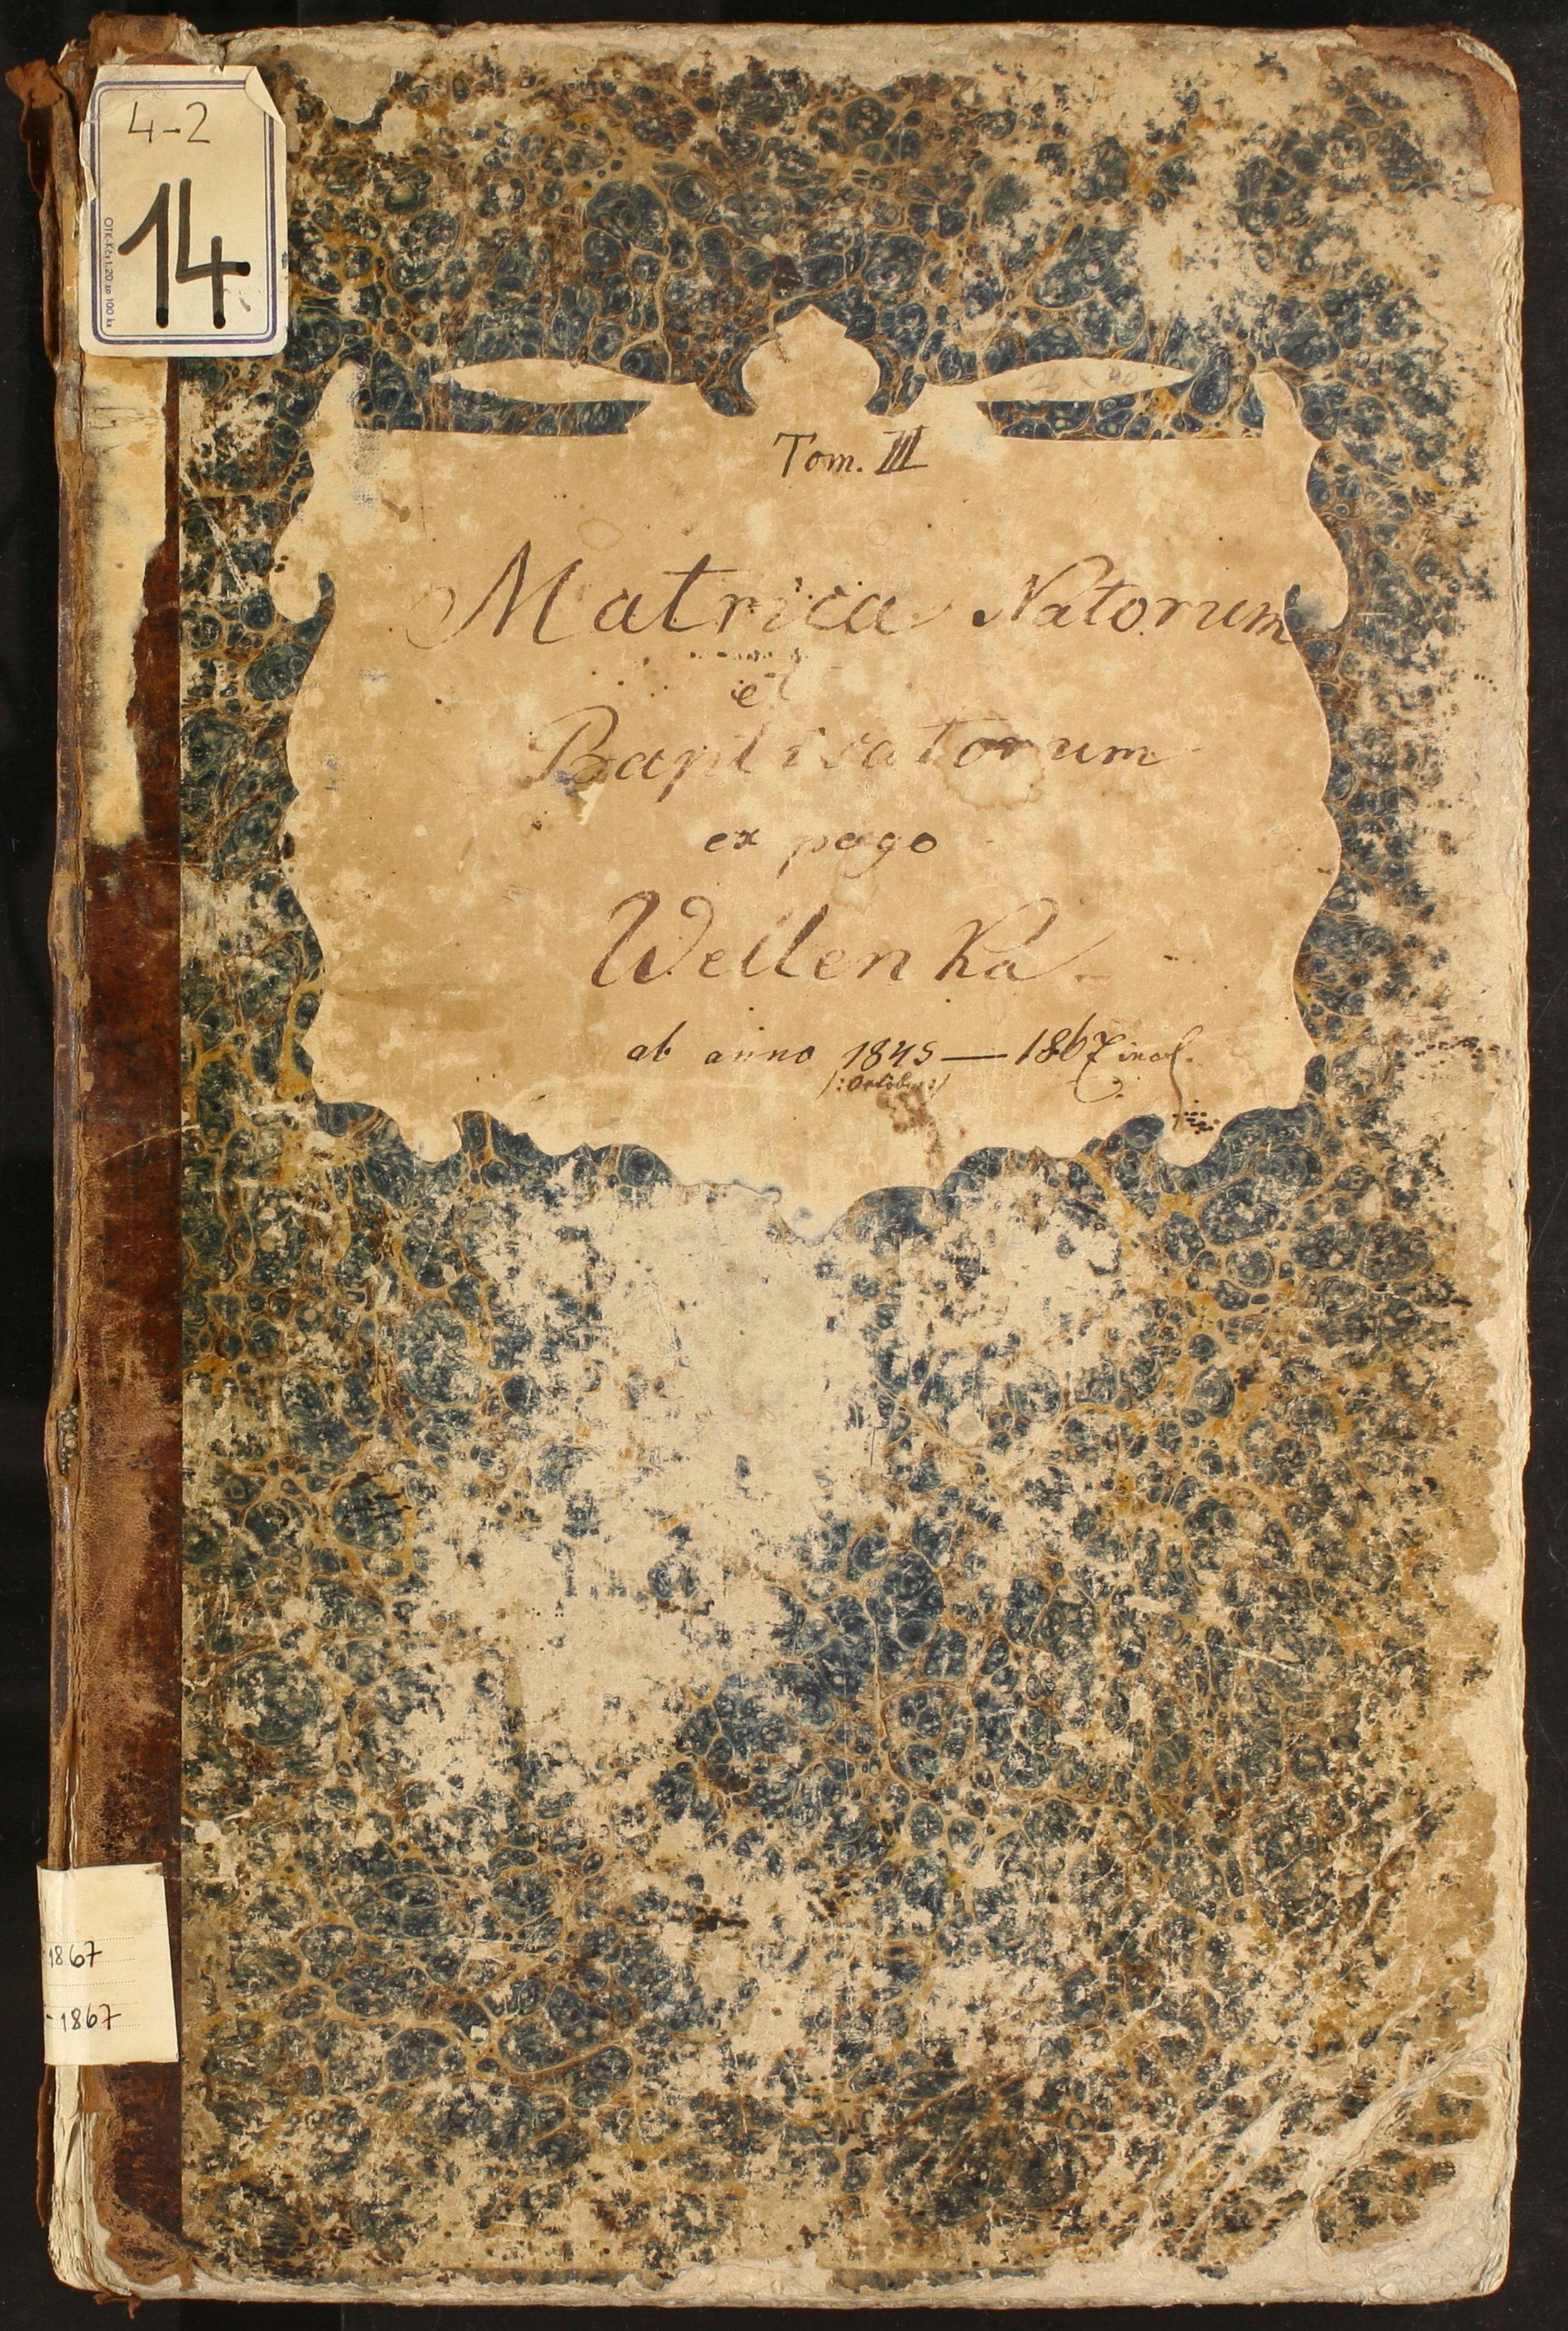 4-2
14
Tom. III
Matrica Natorum
et
Baptisatorum
ex pago
Wellenka
ab anno 1845 — 1867 incl.
/:October:/
-1867
-1867